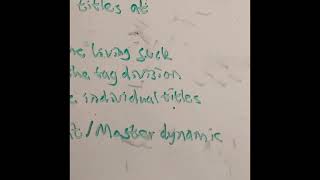 titles at
he living suck
the tag division
e individual titles
t/Master dynamic